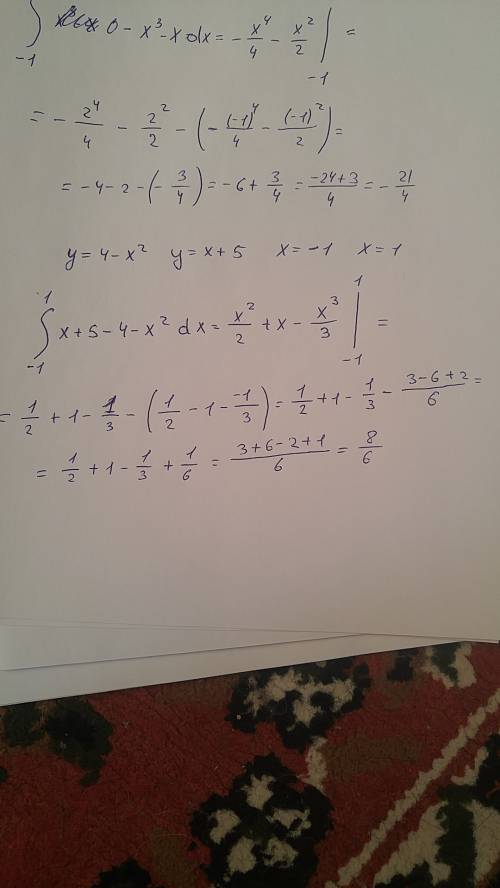 ∫_{-1} 0 - x³ - x dx = - x⁴/4 - x²/2 |_{-1} =
= - 2⁴/4 - 2²/2 - (- (-1)⁴/4 - (-1)²/2) =
= -4 - 2 - (- 3/4) = -6 + 3/4 = (-24+3)/4 = - 21/4
y = 4 - x² y = x + 5 x = -1 x = 1
∫_{-1}^{1} x + 5 - 4 - x² dx = x²/2 + x - x³/3 |_{-1}^{1} =
= 1/2 + 1 - 1/3 - (1/2 - 1 - -1/3) = 1/2 + 1 - 1/3 - (3-6+2)/6 =
= 1/2 + 1 - 1/3 + 1/6 = (3+6-2+1)/6 = 8/6